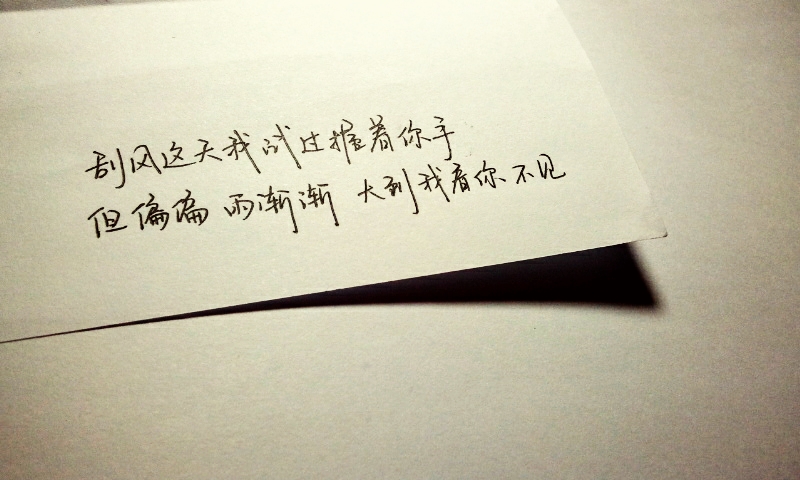 刮风这天我试过握着你手
但偏偏雨渐渐大到我看你不见